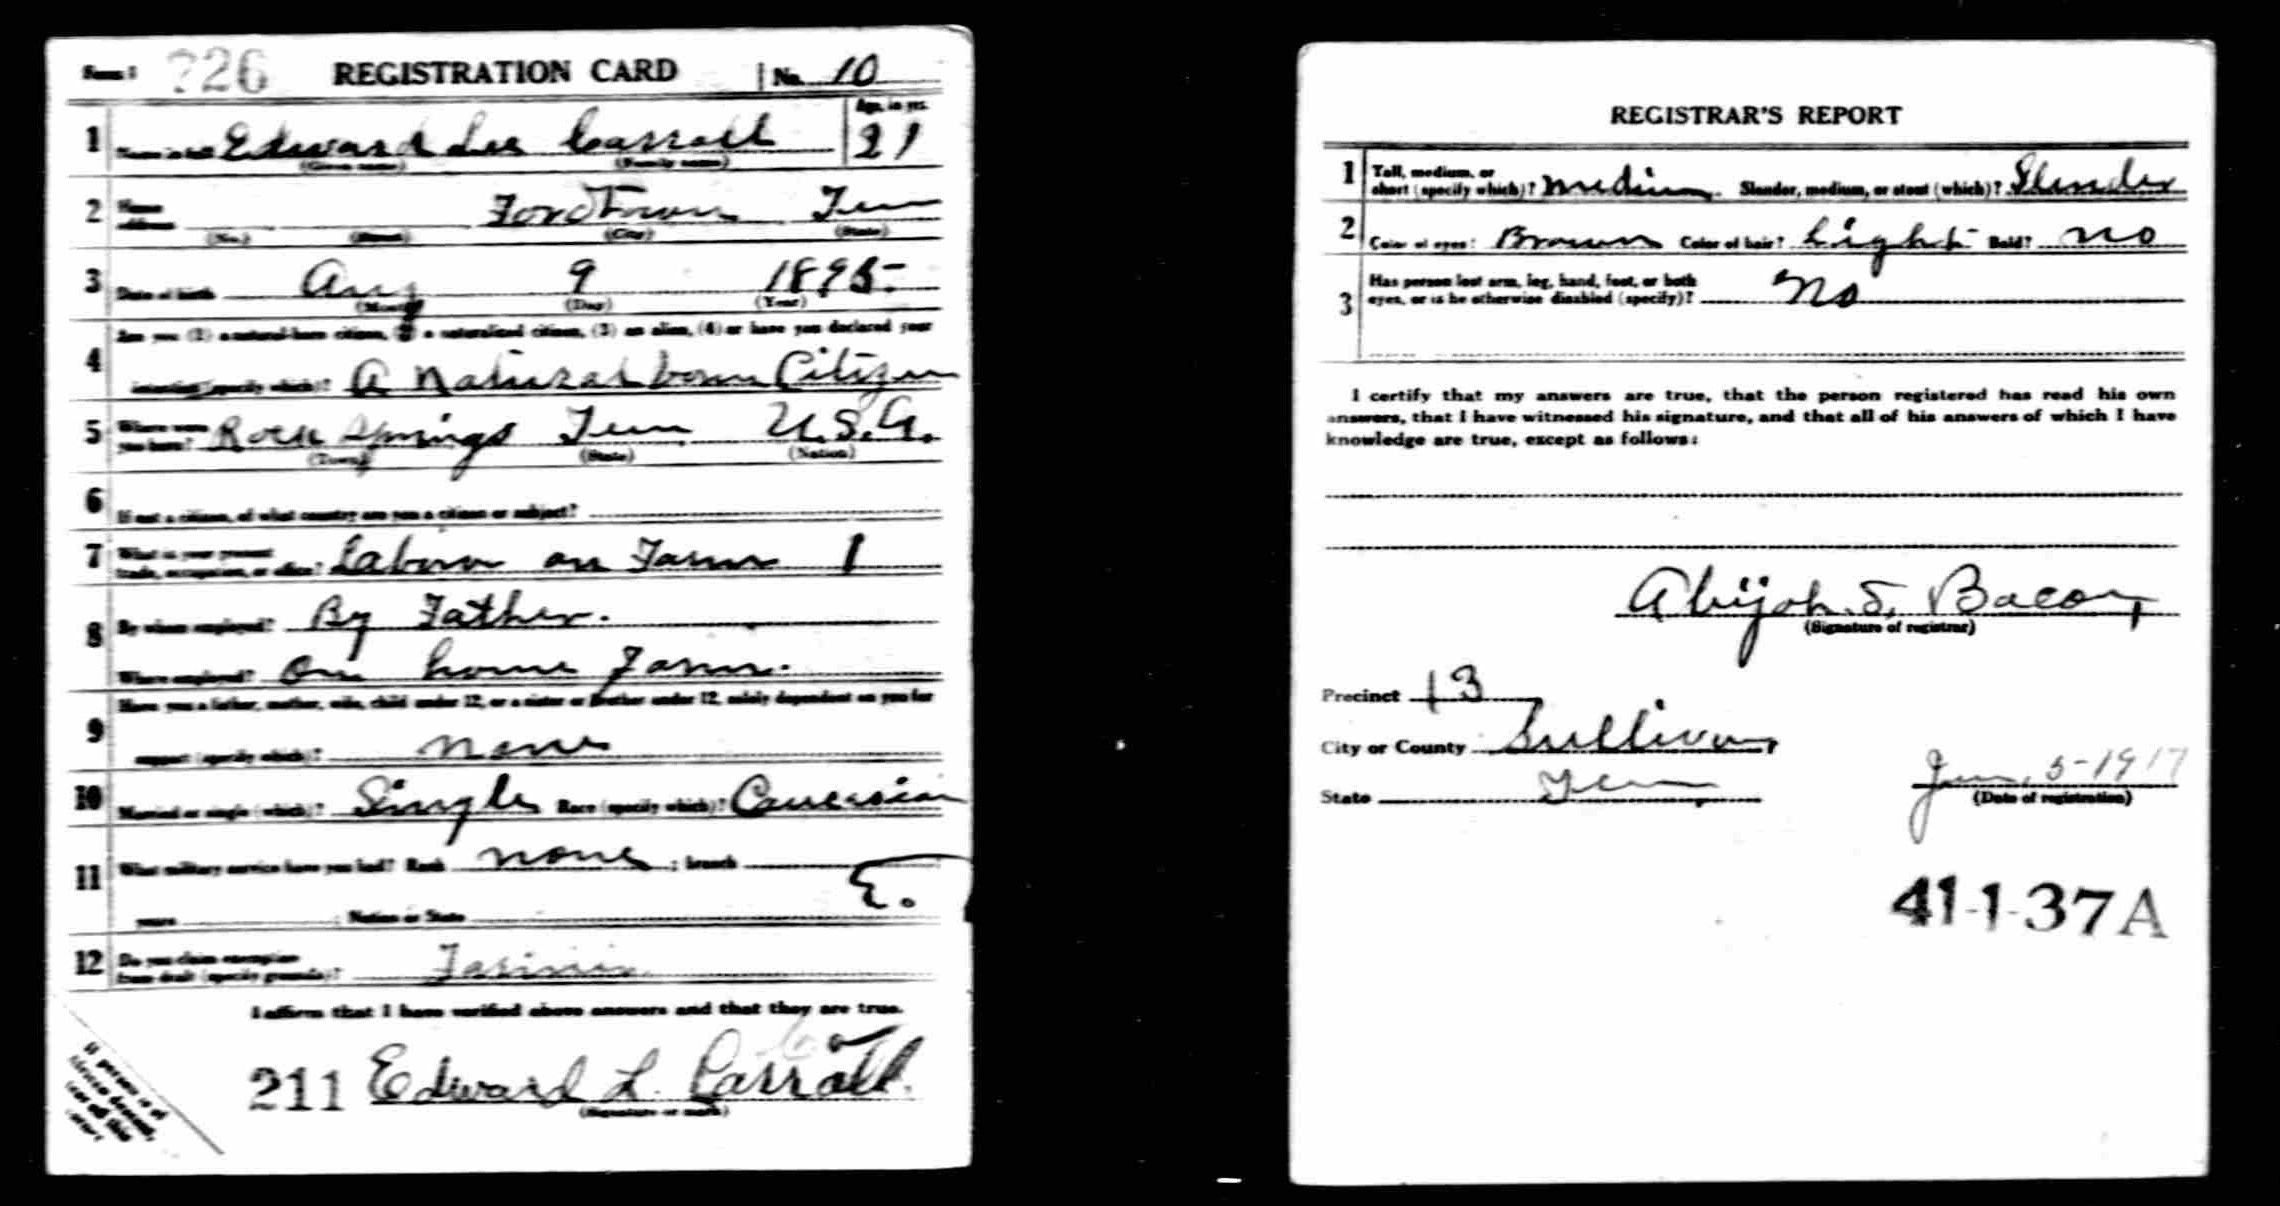 Form 1 726 REGISTRATION CARD No. 10
Age, in yrs.
1 Name in full Edward Lee Carroll 21
(Given name) (Family name)
2 Home address Fordtown Tenn
(No.) (Street) (City) (State)
3 Date of birth Aug 9 1895
(Month) (Day) (Year)
Are you (1) a natural-born citizen, (2) a naturalized citizen, (3) an alien, (4) or have you declared your
4 intention (specify which)? A Natural born Citizen
5 Where were you born? Rock Springs Tenn U.S.A.
(Town) (State) (Nation)
6 If not a citizen, of what country are you a citizen or subject?
7 What is your present trade, occupation, or office? Labor on Farm 1
8 By whom employed? By Father.
Where employed? On home Farm.
Have you a father, mother, wife, child under 12, or a sister or brother under 12, solely dependent on you for
9 support (specify which)? None
10 Married or single (which)? Single Race (specify which)? Caucasian
11 What military service have you had? Rank none ; branch
E.
years ; Nation or State
12 Do you claim exemption from draft (specify grounds)?
I affirm that I have verified above answers and that they are true.
211 Edward L. Carroll
(Signature or mark)
If person is of
African descent,
REGISTRAR'S REPORT
1 Tall, medium, or short (specify which)? Medium Slender, medium, or stout (which)? Slender
2 Color of eyes? Brown Color of hair? Light Bald? no
3 Has person lost arm, leg, hand, foot, or both
eyes, or is he otherwise disabled (specify)? No
I certify that my answers are true, that the person registered has read his own
answers, that I have witnessed his signature, and that all of his answers of which I have
knowledge are true, except as follows:
Abijah S. Bacon
(Signature of registrar)
Precinct 13
City or County Sullivan
State Tenn Jun, 5-1917
(Date of registration)
41-1-37 A